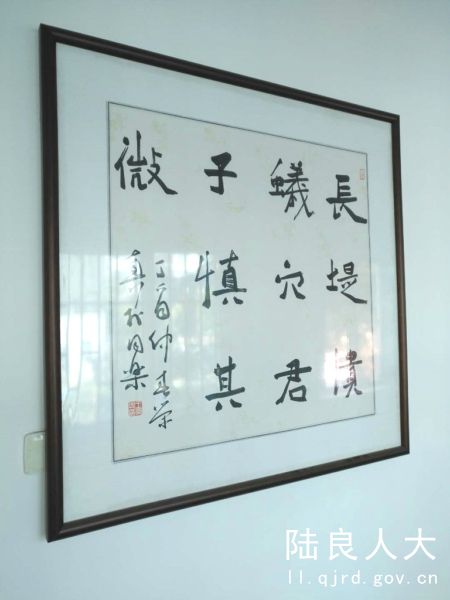 長堤潰
蟻穴君
子慎其
微
丁酉仲春榮
真於同樂
陆良人大
ll.qjrd.gov.cn